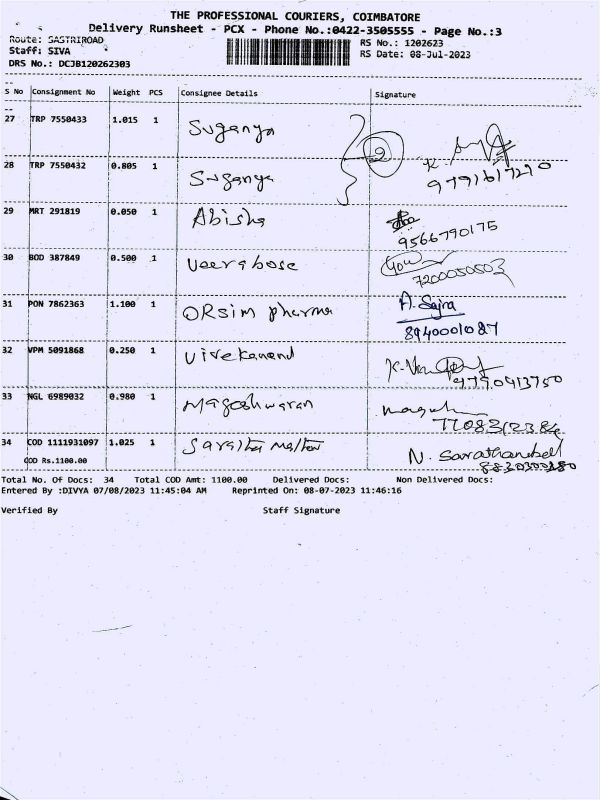 THE PROFESSIONAL COURIERS, COIMBATORE
Delivery Runsheet - PCX - Phone No.:0422-3505555 - Page No.:3
Route: SASTRIROAD
RS No.: 1202623
Staff: SIVA
RS Date: 08-Jul-2023
DRS No.: DCJB120262303
S No Consignment No Weight PCS Consignee Details Signature
27 TRP 7550433 1.015 1 Suganya
2
28 TRP 7550432 0.805 1 Suganya
9791617210
29 MRT 291819 0.050 1 Abisha
9566790175
30 BOD 387849 0.500 1 Veerabose
7200050503
31 PON 7862363 1.100 1 ORSim pharma A. Sajra
8940001087
32 VPM 5091868 0.250 1 Vivekanand
9790413750
33 NGL 6989032 0.980 1 Mageshwaran
34 COD 1111931097 1.025 1
N. Sarathambell
COD Rs.1100.00
8830300280
Total No. Of Docs: 34 Total COD Amt: 1100.00 Delivered Docs: Non Delivered Docs:
Entered By :DIVYA 07/08/2023 11:45:04 AM Reprinted On: 08-07-2023 11:46:16
Verified By Staff Signature